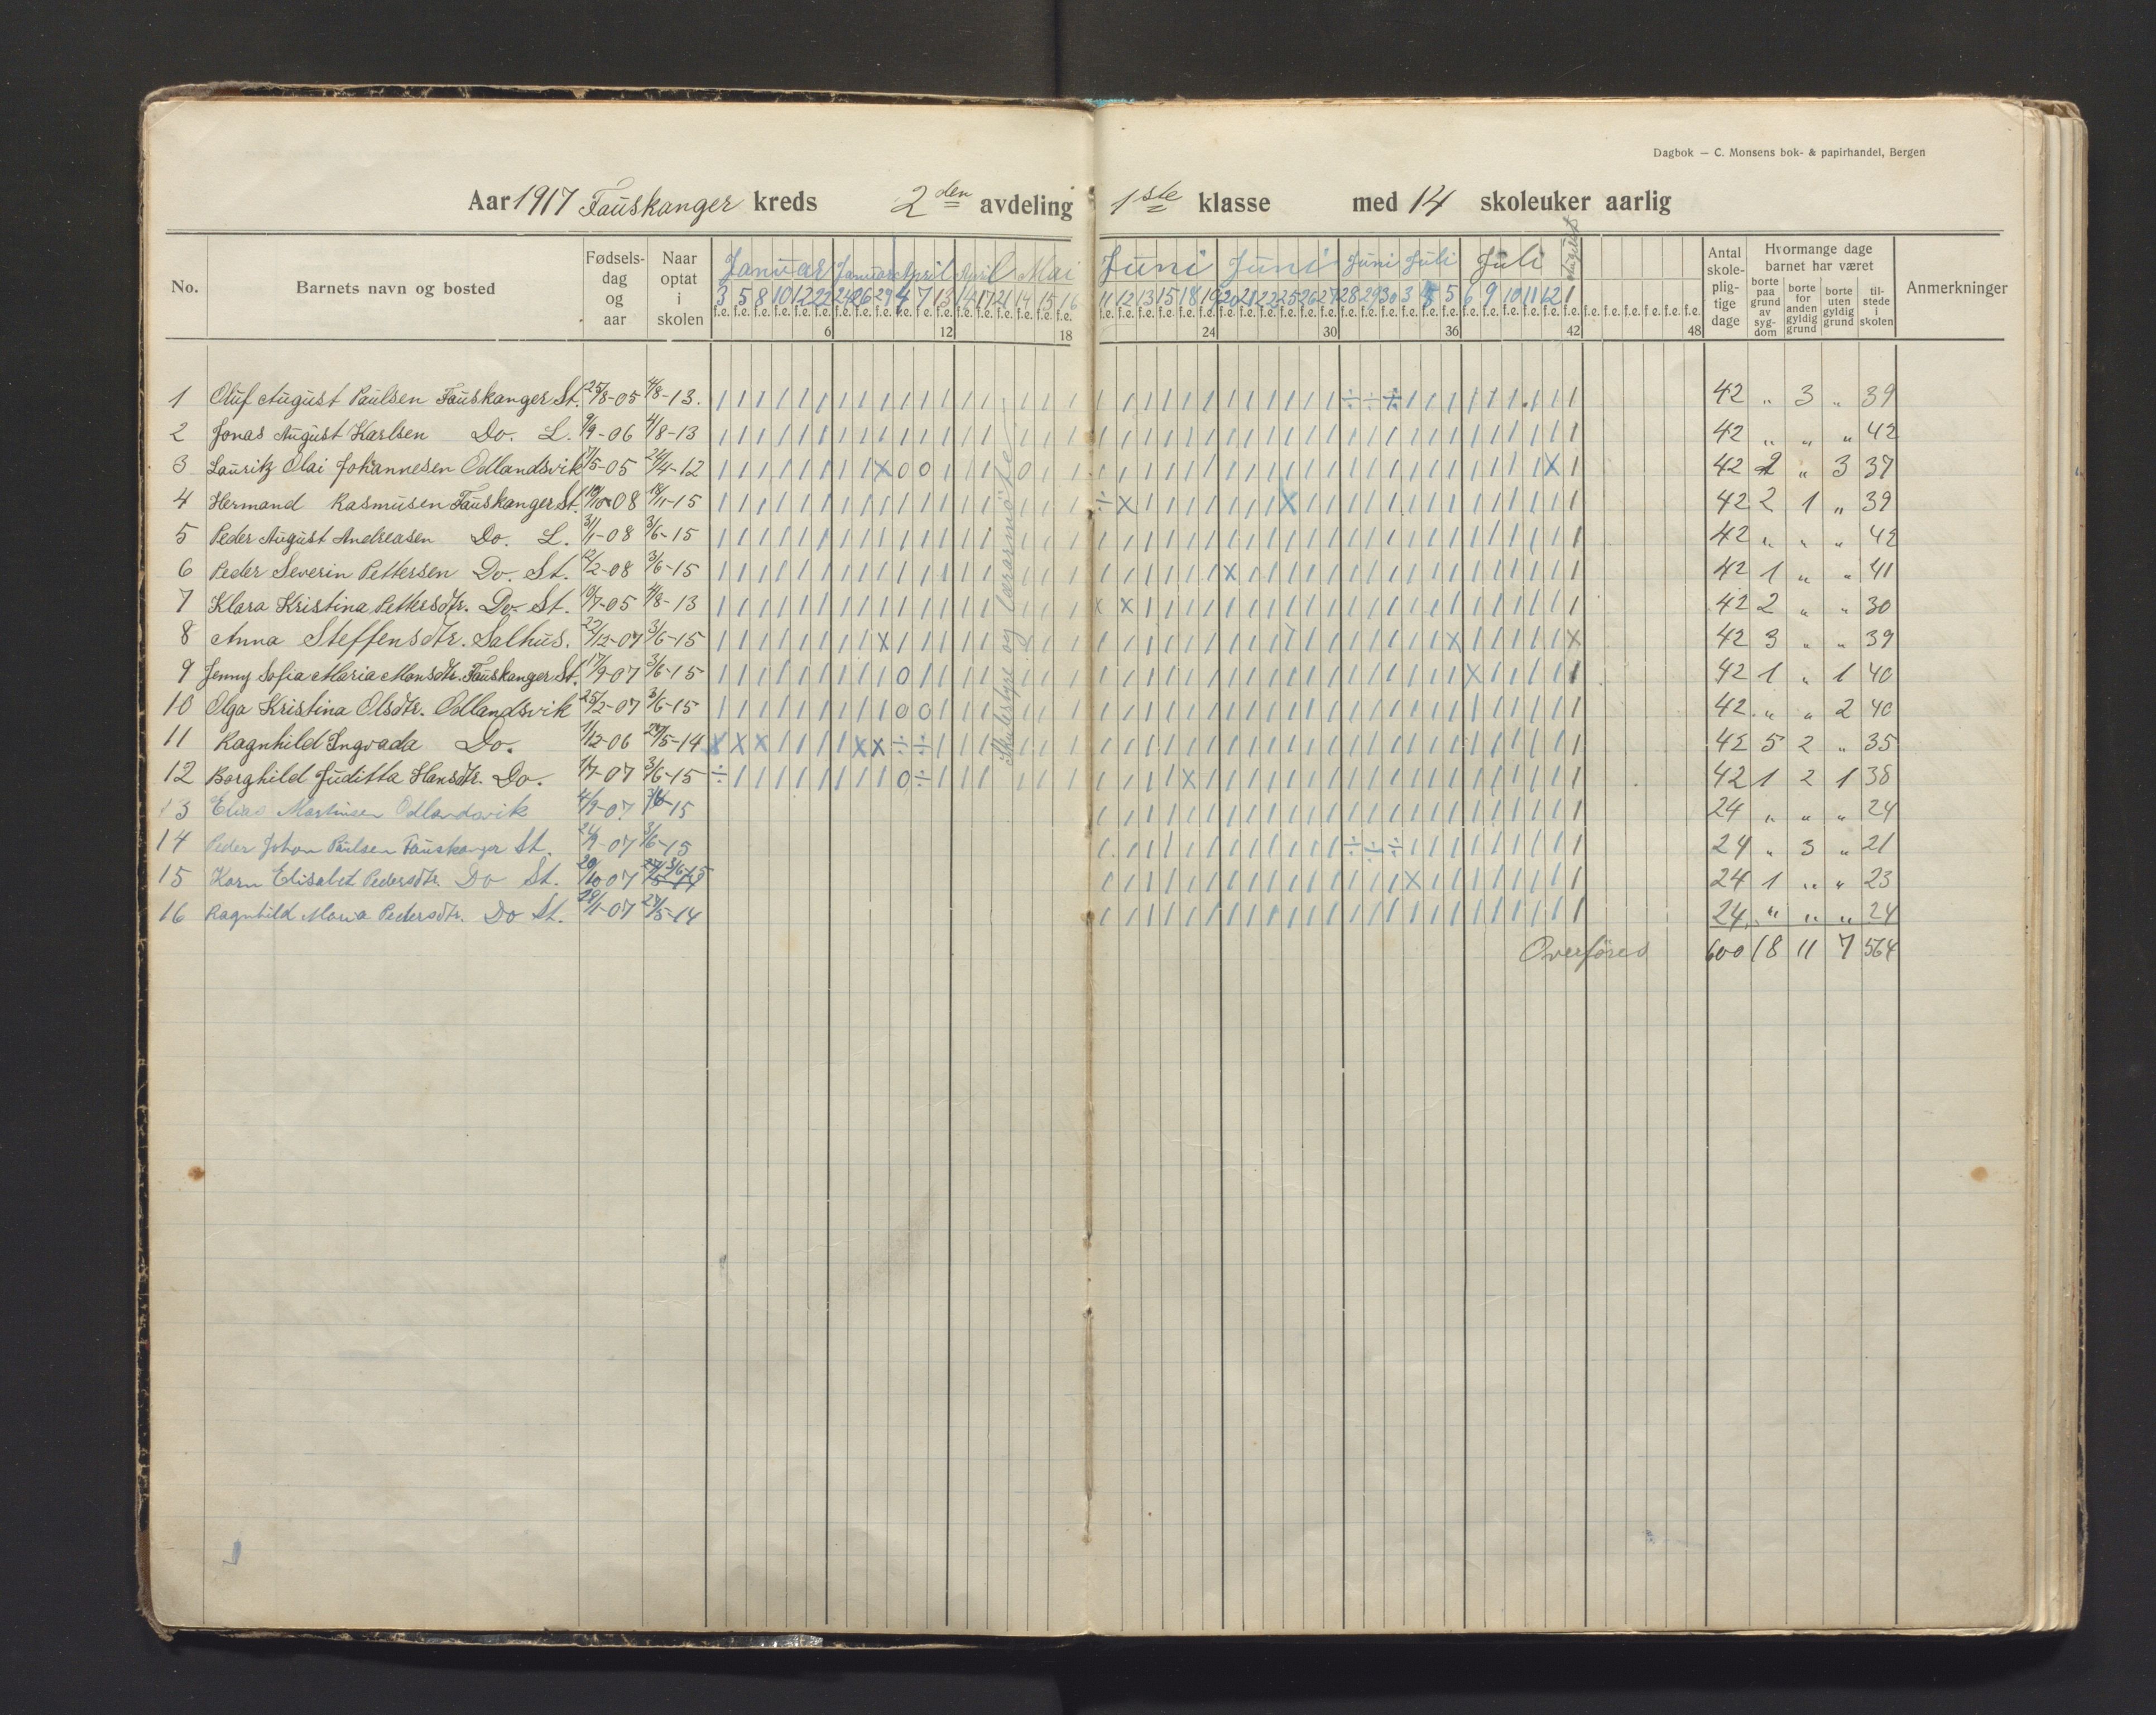 Dagbok — C. Monsens bok- & papirhandel, Bergen
Aar 1917 Fauskanger kreds 2den avdeling 1ste klasse med 14 skoleuker aarlig
No. Barnets navn og bosted Fødselsdag og aar Naar optat i skolen Januar Januar April April Mai Juni Juni Juni Juli Juli August Antal skolepligtige dage Hvormange dage barnet har været Anmerkninger
borte paa grund av sygdom borte for anden gyldig grund borte uten gyldig grund tilstede i skolen
3 5 8 10 12 22 24 26 29 4 7 13 14 17 21 14 15 16 11 12 13 15 18 19 20 21 22 25 26 27 28 29 30 3 4 5 6 9 10 11 12 1
f.e. f.e. f.e. f.e. f.e. f.e. f.e. f.e. f.e. f.e. f.e. f.e. f.e. f.e. f.e. f.e. f.e. f.e. f.e. f.e. f.e. f.e. f.e. f.e. f.e. f.e. f.e. f.e. f.e. f.e. f.e. f.e. f.e. f.e. f.e. f.e. f.e. f.e. f.e. f.e. f.e. f.e. f.e. f.e. f.e. f.e. f.e. f.e.
6 12 18 24 30 36 42 48
1 Oluf August Paulsen Fauskanger St. 25/8-05 4/8-13. 42 " 3 " 39
2 Jonas August Karlsen Do. L. 9/9-06 4/8-13 42 " " " 42
3 Lauritz Olai Johannesen Odlandsvik 17/5-05 24/4-12 42 2 " 3 37
4 Hermand Rasmusen Fauskanger St. 19/10-08 18/11-15 42 2 1 " 39
5 Peder August Andreasen Do. L. 31/1-08 3/6-15 42 " " " 42
6 Peder Severin Pettersen Do. St. 12/2-08 3/6-15 42 1 " " 41
7 Klara Kristina Pettersdtr. Do. St. 19/7-05 4/8-13 42 2 " " 30
8 Anna Steffensdtr. Salhus. 22/12-07 3/6-15 42 3 " " 39
9 Jenny Sofia Maria Monsdtr. Fauskanger St. 17/9-07 3/6-15 42 1 " 1 40
10 Olga Kristina Olsdtr. Odlandsvik 25/2-07 3/6-15 42 " " 2 40
11 Ragnhild Ingvada Do. 1/12-06 24/5-14 42 5 2 " 35
12 Borghild Juditta Hansdtr. Do. 1/7-07 3/6-15 42 1 2 1 38
13 Elias Martinsen Odlandsvik 4/9-07 3/6-15 24 " " " 24
14 Peder Johan Paulsen Fauskanger St. 24/9-07 3/6-15 24 " 3 " 21
15 Karn Elisabet Pedersdtr. Do St. 20/10-07 3/6-15 24 1 " " 23
16 Ragnhild Maria Pedersdtr. Do St. 28/1-07 24/5-14 24 " " " 24
Skulestyre og lærarmøte
Overføres 600 18 11 7 564